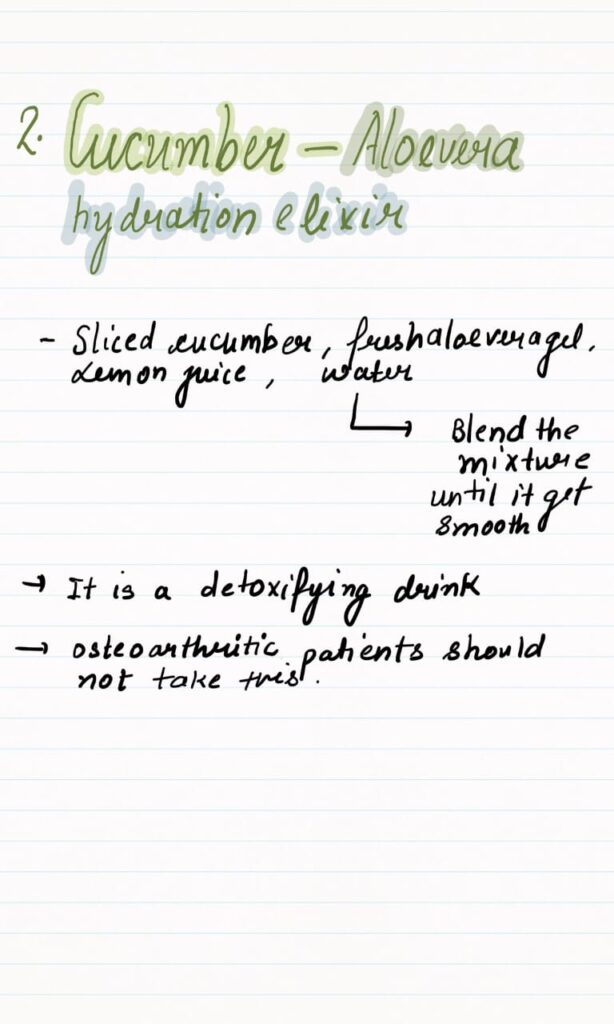 2. Cucumber – Aloevera
hydration elixir
- Sliced cucumber, fresh aloevera gel,
Lemon juice, water
Blend the
mixture
until it get
smooth
→ It is a detoxifying drink
→ osteoarthritic patients should
not take this.